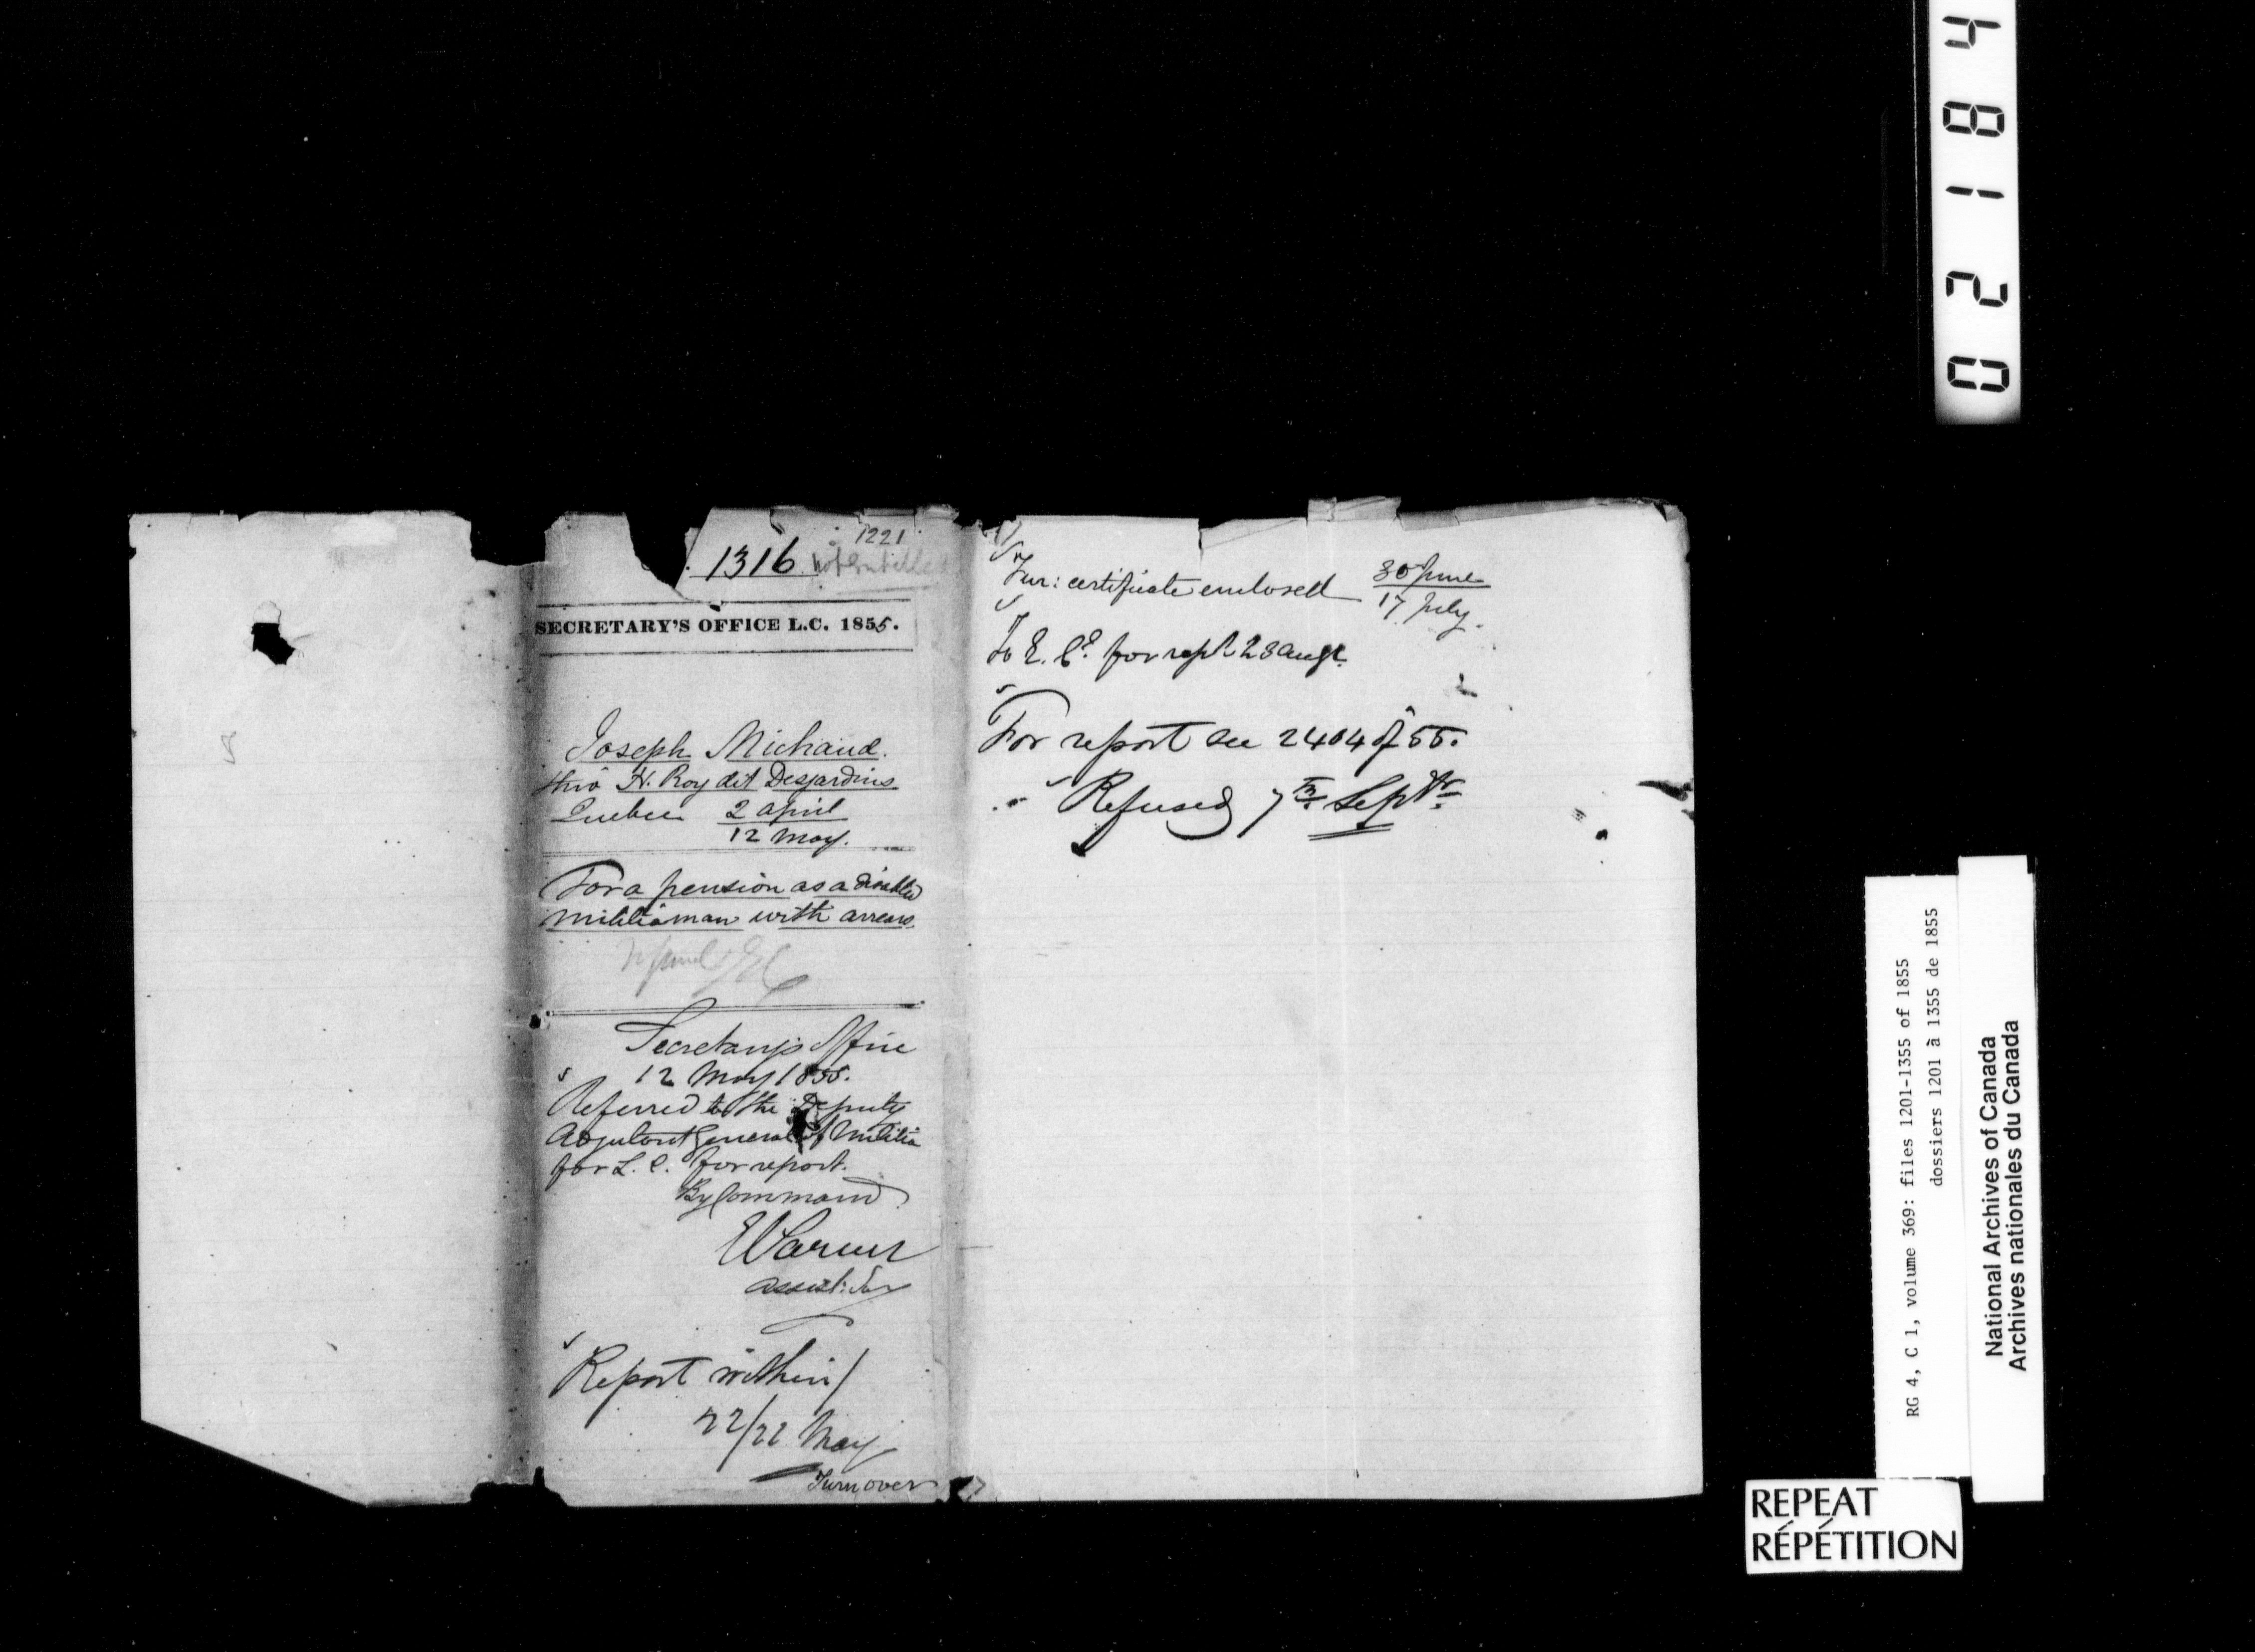 1221
1316 not entitled
SECRETARY'S OFFICE L.C. 1855.
Joseph Michaud.
thro' H. Roy dit Desjardins
Quebec 2 April
12 May.
For a pension as a disabled
militiaman with arrears.
Secretary's Office
12 May 1855.
Referred to the Deputy
Adjutant General of Militia
for L. C. for report.
By Command
assist: Sec
Report within /
22/22 May
Turn over
Fur: certificate enclosed 30 June
17 July.
To E. Co. for rept 28 Augt.
For report see 2404 of 55.
Refused 7th Septr.
0 2 1 8 4
RG 4, C 1, volume 369: files 1201-1355 of 1855
dossiers 1201 à 1355 de 1855
National Archives of Canada
Archives nationales du Canada
REPEAT
RÉPÉTITION